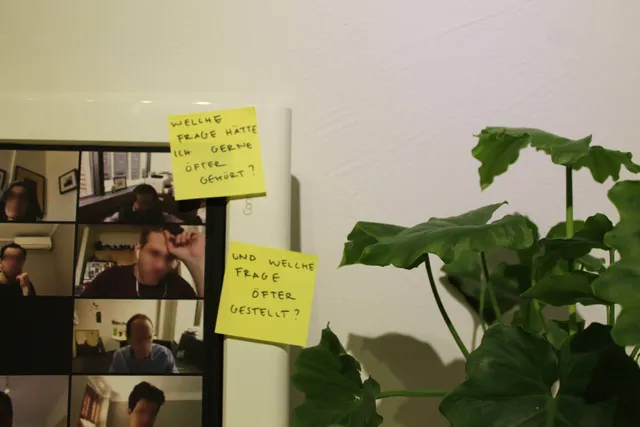 WELCHE
FRAGE HÄTTE
ICH GERNE
ÖFTER
GEHÖRT?
UND WELCHE
FRAGE
ÖFTER
GESTELLT?